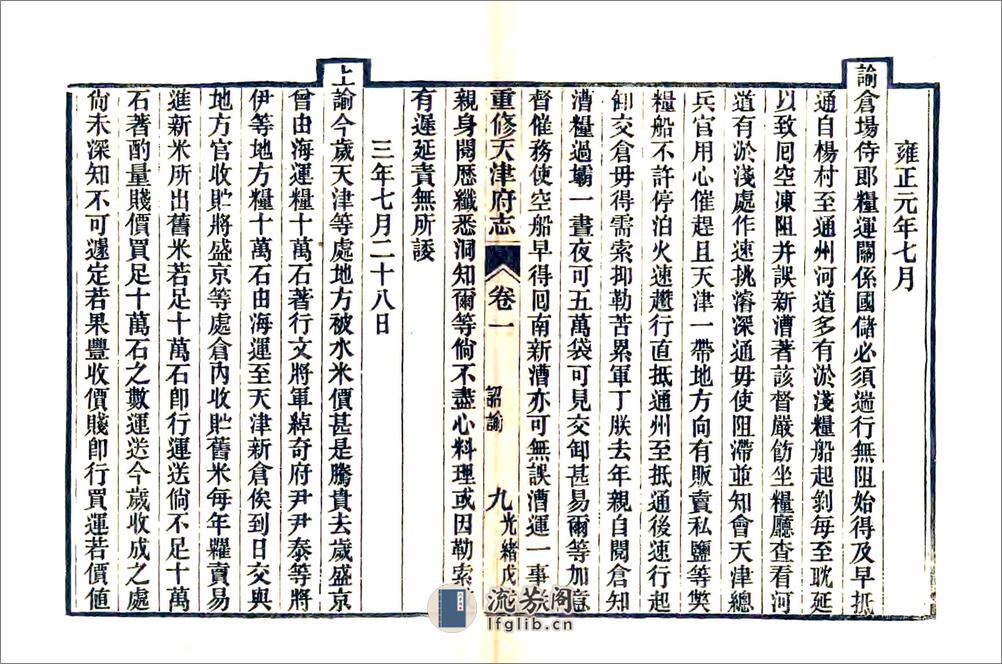 雍正元年七月
諭倉場侍郎糧運關係國儲必須遄行無阻始得及早抵
通自楊村至通州河道多有淤淺糧船起剝每至耽延
以致囘空凍阻并誤新漕著該督嚴飭坐糧廳查看河
道有淤淺處作速挑濬深通毋使阻滯並知會天津總
兵官用心催趕且天津一帶地方向有販賣私鹽等獘
糧船不許停泊火速趲行直抵通州至抵通後速行起
卸交倉毋得需索抑勒苦累軍丁朕去年親自閱倉知
漕糧過壩一晝夜可五萬袋可見交卸甚易爾等加意
督催務使空船早得囘南新漕亦可無誤漕運一事
重修天津府志
卷一
詔諭
九
光緒戊
親身閱歷纖悉洞知爾等倘不盡心料理或因勒索
有遲延責無所諉
三年七月二十八日
上諭今歲天津等處地方被水米價甚是騰貴去歲盛京
曾由海運糧十萬石著行文將軍綽奇府尹尹泰等將
伊等地方糧十萬石由海運至天津新倉俟到日交與
地方官收貯將盛京等處倉內收貯舊米每年糶賣易
進新米所出舊米若足十萬石卽行運送倘不足十萬
石著酌量賤價買足十萬石之數運送今歲收成之處
尙未深知不可遽定若果豐收價賤卽行買運若價値
流芬阁
lfglib.cn